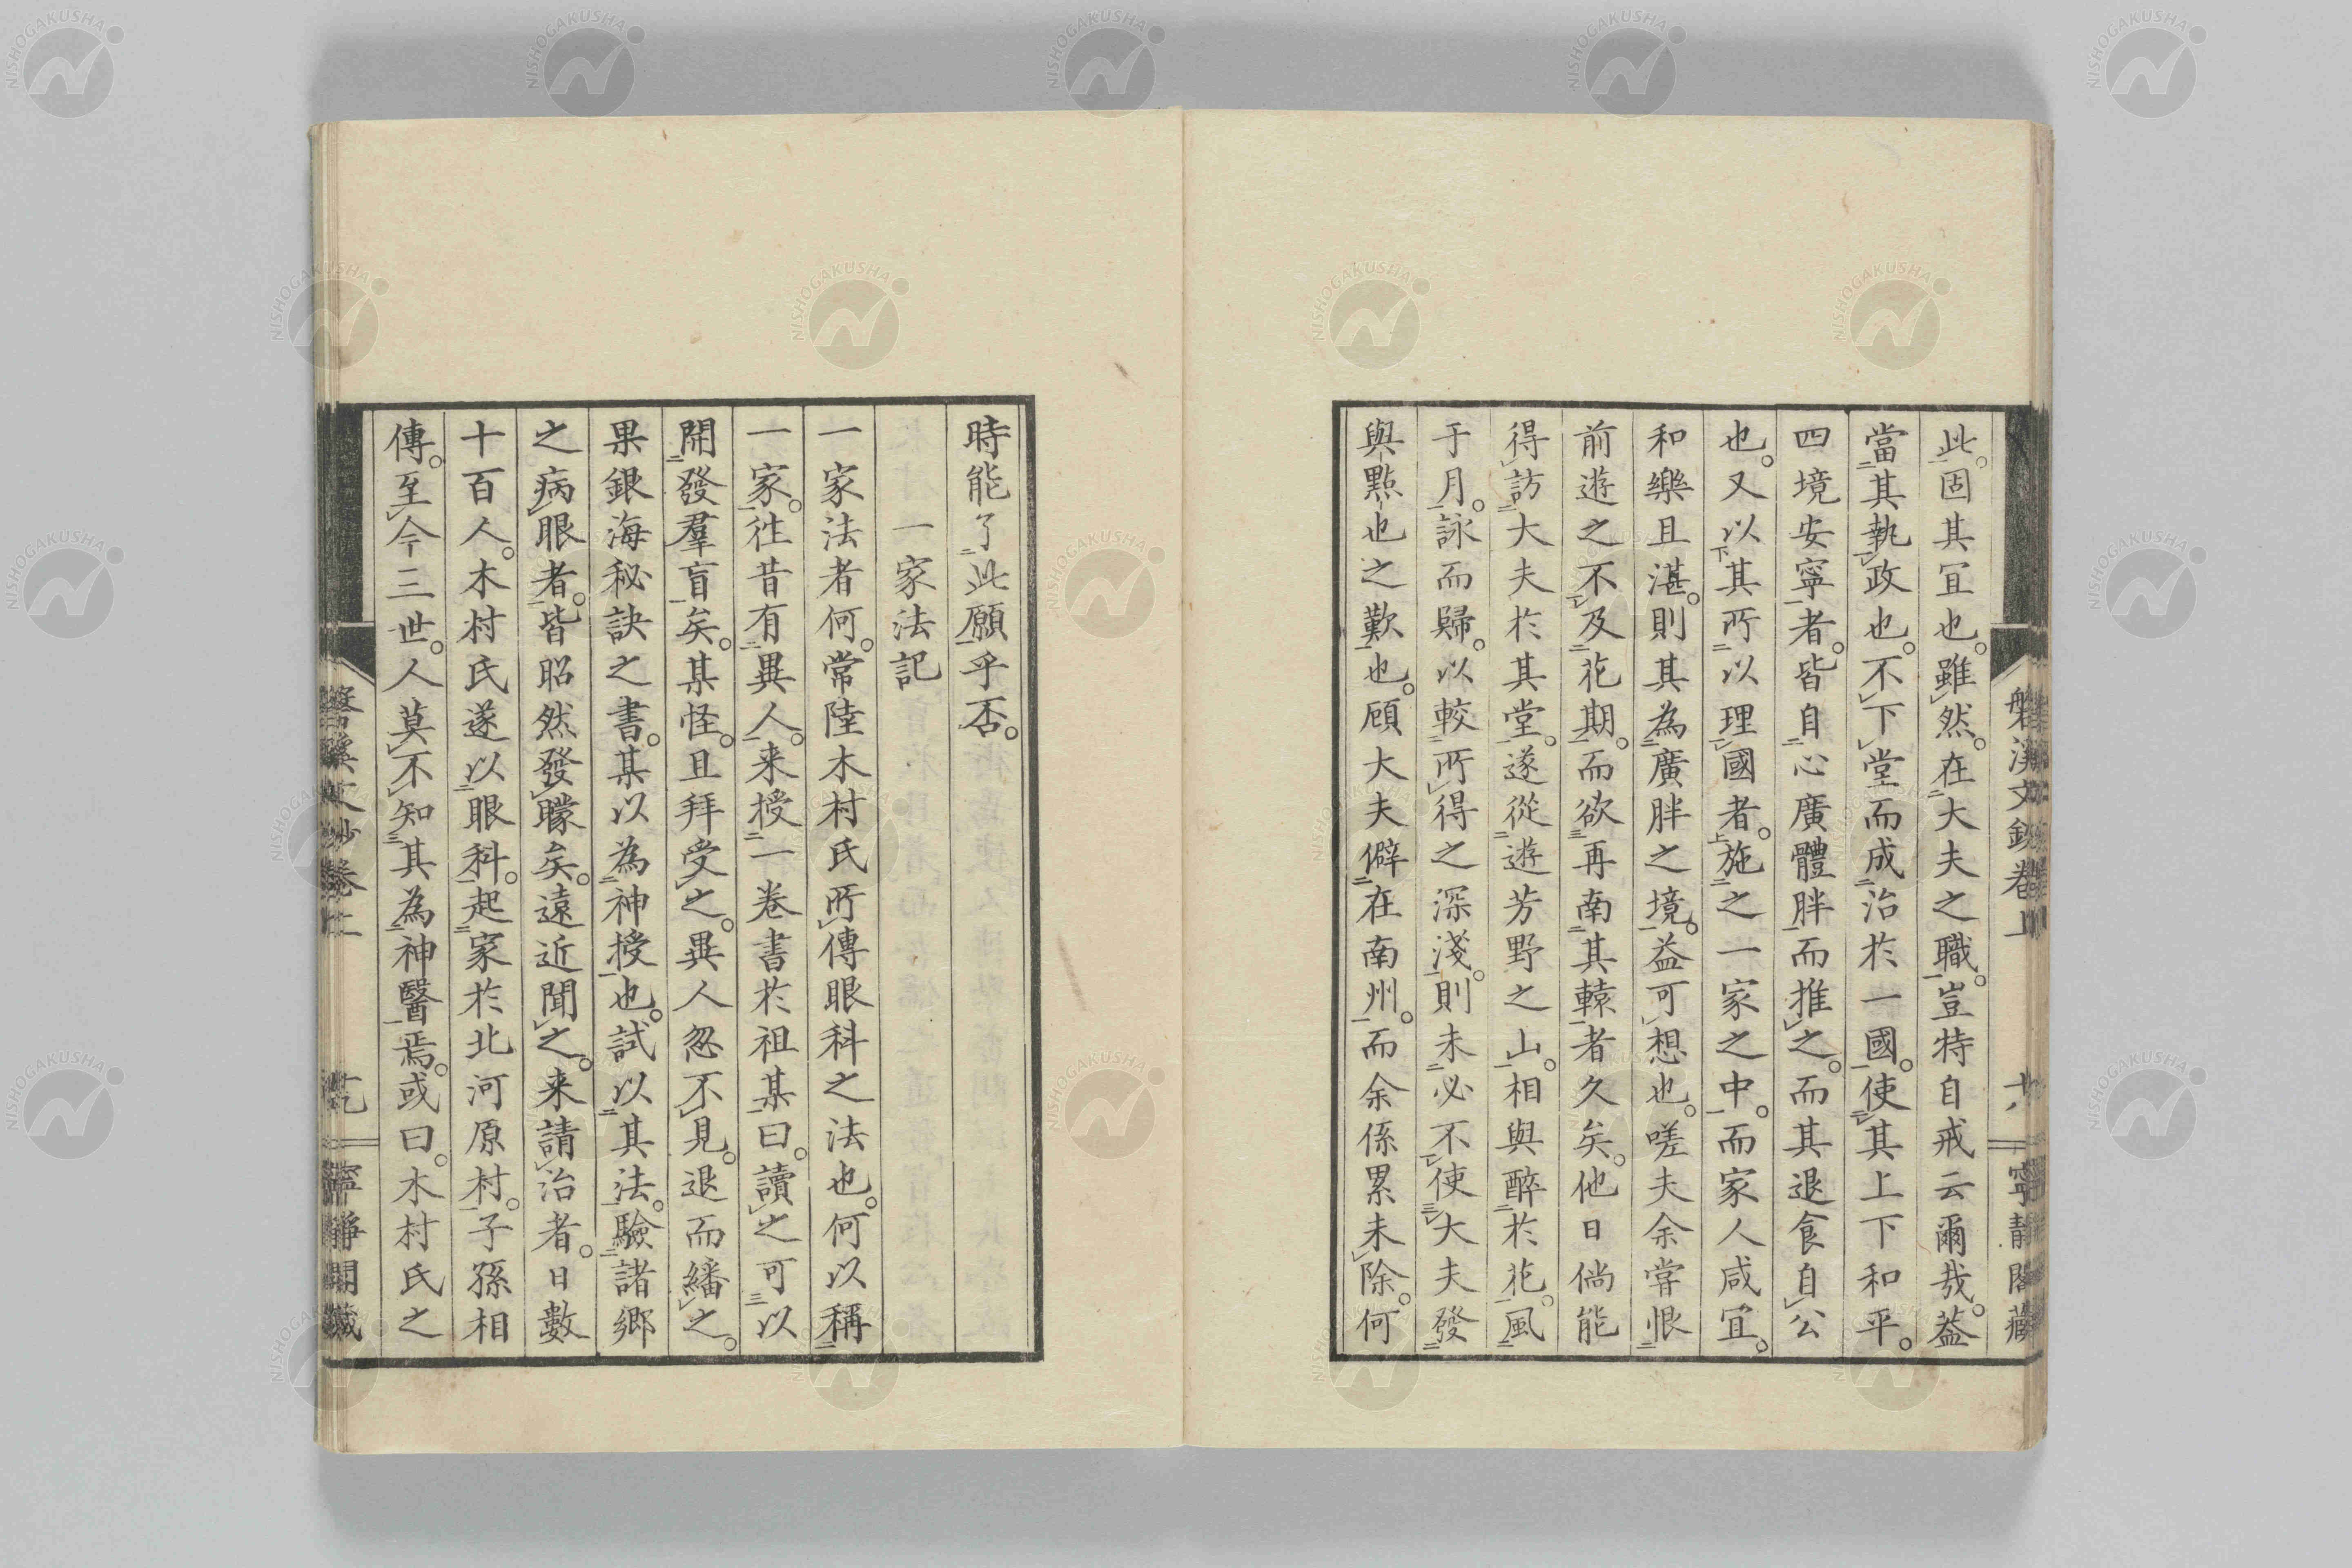 此。固其宜也。雖然。在大夫之職。豈特自戒云爾哉。蓋
當其執政也。不下堂而成治於一國。使其上下和平。
四境安寧者。皆自心廣體胖而推之。而其退食自公
也。又以其所以理國者。施之一家之中。而家人咸宜。
和樂且湛。則其為廣胖之境。益可想也。嗟夫余嘗恨
前遊之不及花期。而欲再南其轅者久矣。他日倘能
得訪大夫於其堂。遂從遊芳野之山。相與醉於花。風
于月。詠而歸。以較所得之深淺。則未必不使大夫發
與點也之歎也。顧大夫僻在南州。而余係累未除。何
磐溪文鈔卷上 十八 寧靜閣藏
時能了此願乎否。
一家法記
一家法者何。常陸木村氏所傳眼科之法也。何以稱
一家。往昔有異人。来授一卷書於祖某曰。讀之可以
開發羣盲矣。某怪。且拜受之。異人忽不見。退而繙之。
果銀海秘訣之書。某以為神授也。試以其法。驗諸鄉
之病眼者。皆昭然發矇矣。遠近聞之。来請治者。日數
十百人。木村氏遂以眼科。起家於北河原村。子孫相
傳。至今三世。人莫不知其為神醫焉。或曰。木村氏之
磐溪文鈔卷上 十九 寧靜閣藏
NISHOGAKUSHA